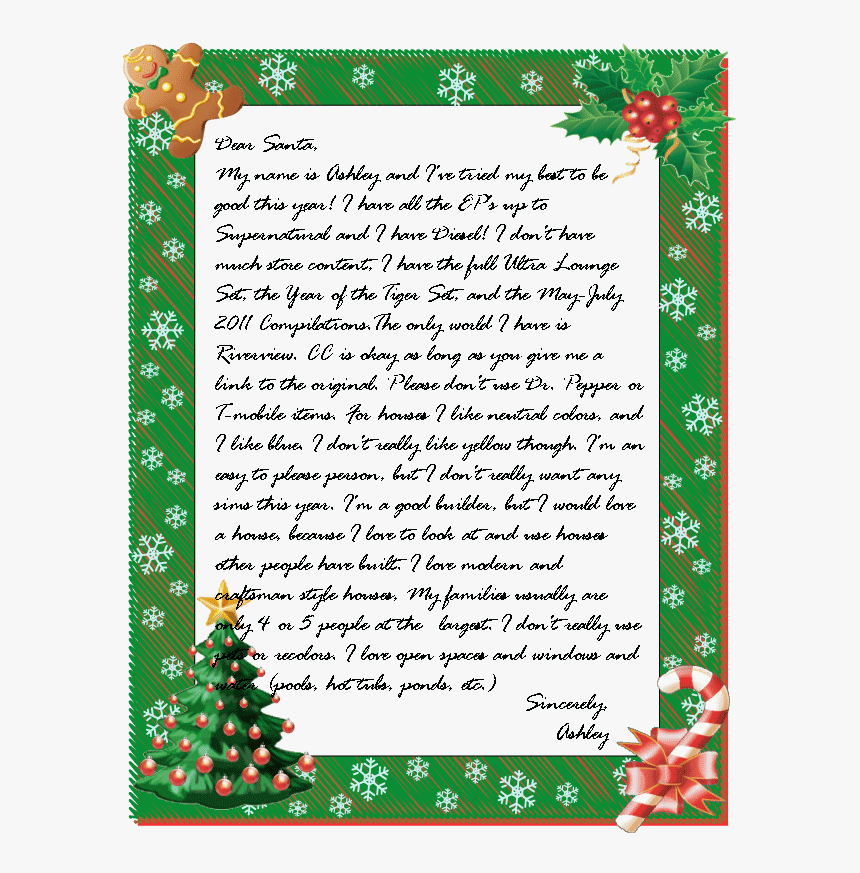 Dear Santa,
My name is Ashley and I've tried my best to be
good this year! I have all the EP's up to
Supernatural and I have Diesel! I don't have
much store content, I have the full Ultra Lounge
Set, the Year of the Tiger Set, and the May-July
2011 Compilations.The only world I have is
Riverview. CC is okay as long as you give me a
link to the original. Please don't use Dr. Pepper or
T-mobile items. For houses I like neutral colors, and
I like blue. I don't really like yellow though. I'm an
easy to please person, but I don't really want any
sims this year. I'm a good builder, but I would love
a house, because I love to look at and use houses
other people have built. I love modern and
craftsman style houses. My families usually are
only 4 or 5 people at the largest. I don't really use
pets or recolors. I love open spaces and windows and
water (pools, hot tubs, ponds, etc.)
Sincerely,
Ashley